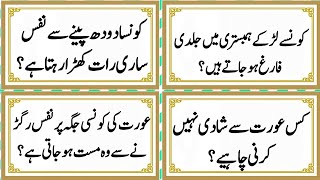 کونسا دودھ پینے سے نفس
ساری رات کھڑا رہتا ہے؟
کونسے لڑکے ہمبستری میں جلدی
فارغ ہو جاتے ہیں؟
عورت کی کونسی جگہ پر نفس رگڑ
نے سے وہ مست ہو جاتی ہے؟
کس عورت سے شادی نہیں
کرنی چاہیے؟